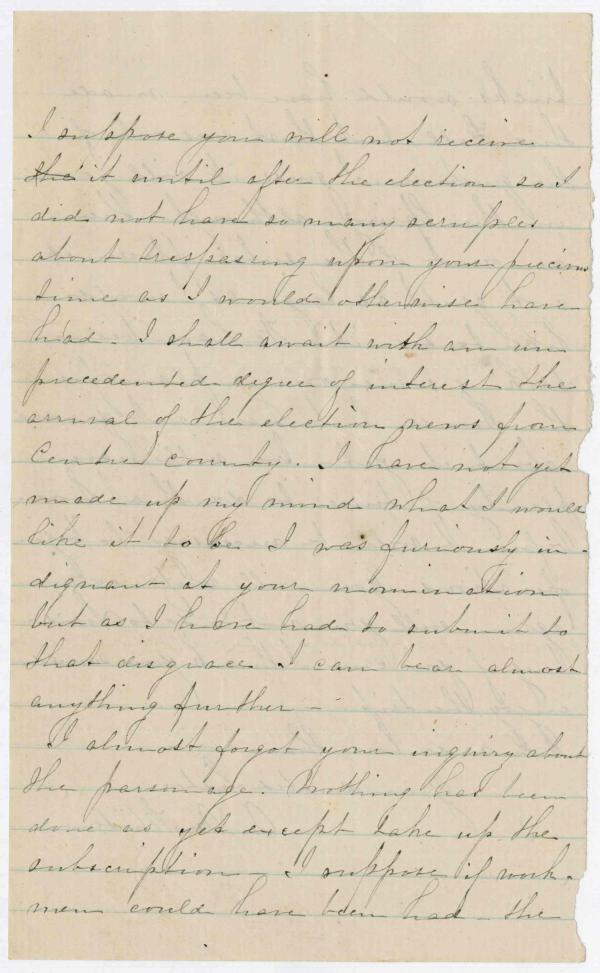 I suppose you will not receive
the it until after the election so I
did not have so many scruples
about trespassing upon your precious
time as I would otherwise have
had - I shall await with an un
precedented degree of interest the
arrival of the election news from
Centre county. I have not yet
made up my mind what I would
like it to be I was furiously in-
dignant at your nomination
but as I have had to submit to
that disgrace I can bear almost
anything further -
I almost forgot your inquiry about
the parsonage. Nothing has been
done as yet except take up the
subscription - I suppose if work-
men could have been had - the